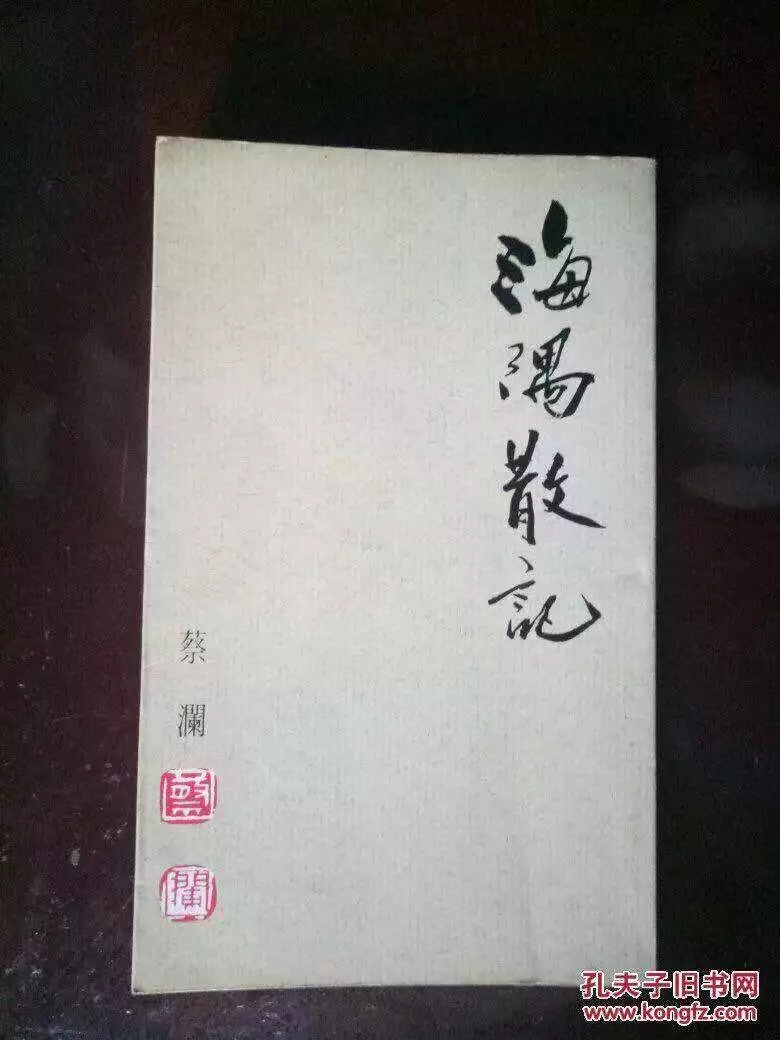 海隅散記
蔡瀾
孔夫子旧书网
www.kongfz.com